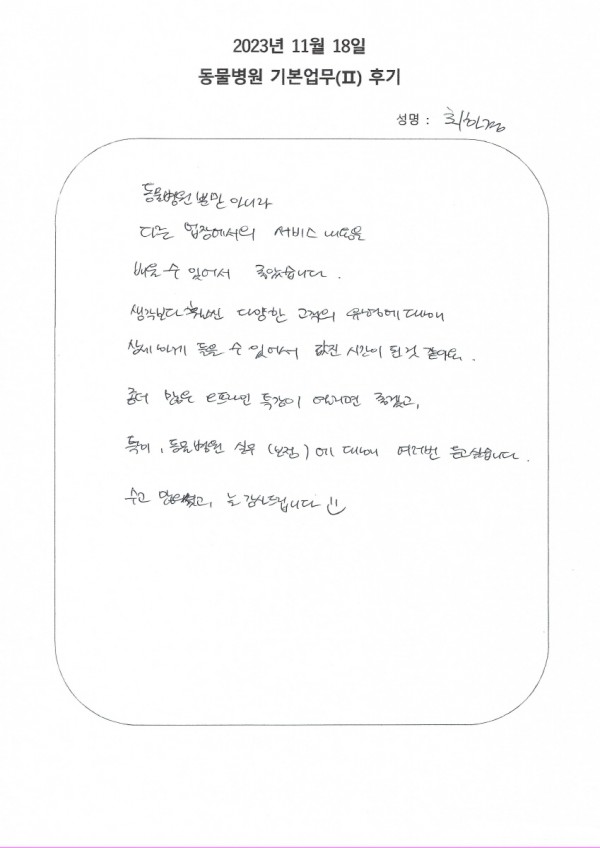 2023년 11월 18일
동물병원 기본업무(Ⅱ) 후기
성명 :
동물병원 뿐만 아니라
다른 업장에서의 서비스 내용을
배울 수 있어서 좋았습니다.
생각보다 훨씬 다양한 고객의 유형에 대해
상세하게 들을 수 있어서 값진 시간이 된 것 같아요.
좀더 많은 오프라인 특강이 열리면 좋겠고,
특히, 동물병원 실무 ( ) 에 대해 여러번 듣고싶습니다.
수고 많으셨고, 늘 감사드립니다